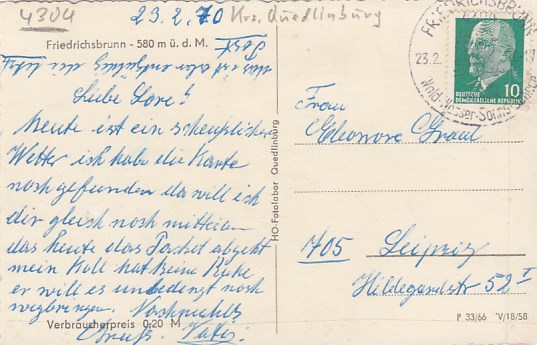 4304
23.2.70 Krs. Quedlinburg
Friedrichsbrunn - 580 m ü. d. M.
Post
Liebe Lore!
heute ist ein scheußliches
Wetter ich habe die Karte
noch gefunden da will ich
dir gleich noch mitteilen
das heute das Packet abgeht
mein Koll hat keine Ruhe
er will es unbedingt noch
wegbringen. Nochmals
Gruß. Vati.
Verbraucherpreis 0,20 M
HO-Fotolabor Quedlinburg
FRIEDRICHSBRUNN
23.2.
Wald-Wasser-Sonne
DEUTSCHE
DEMOKRATISCHE REPUBLIK
10
Frau
Eleonore Graul
705 Leipzig
Hildegardstr 52 I
P 33/66 V/18/58